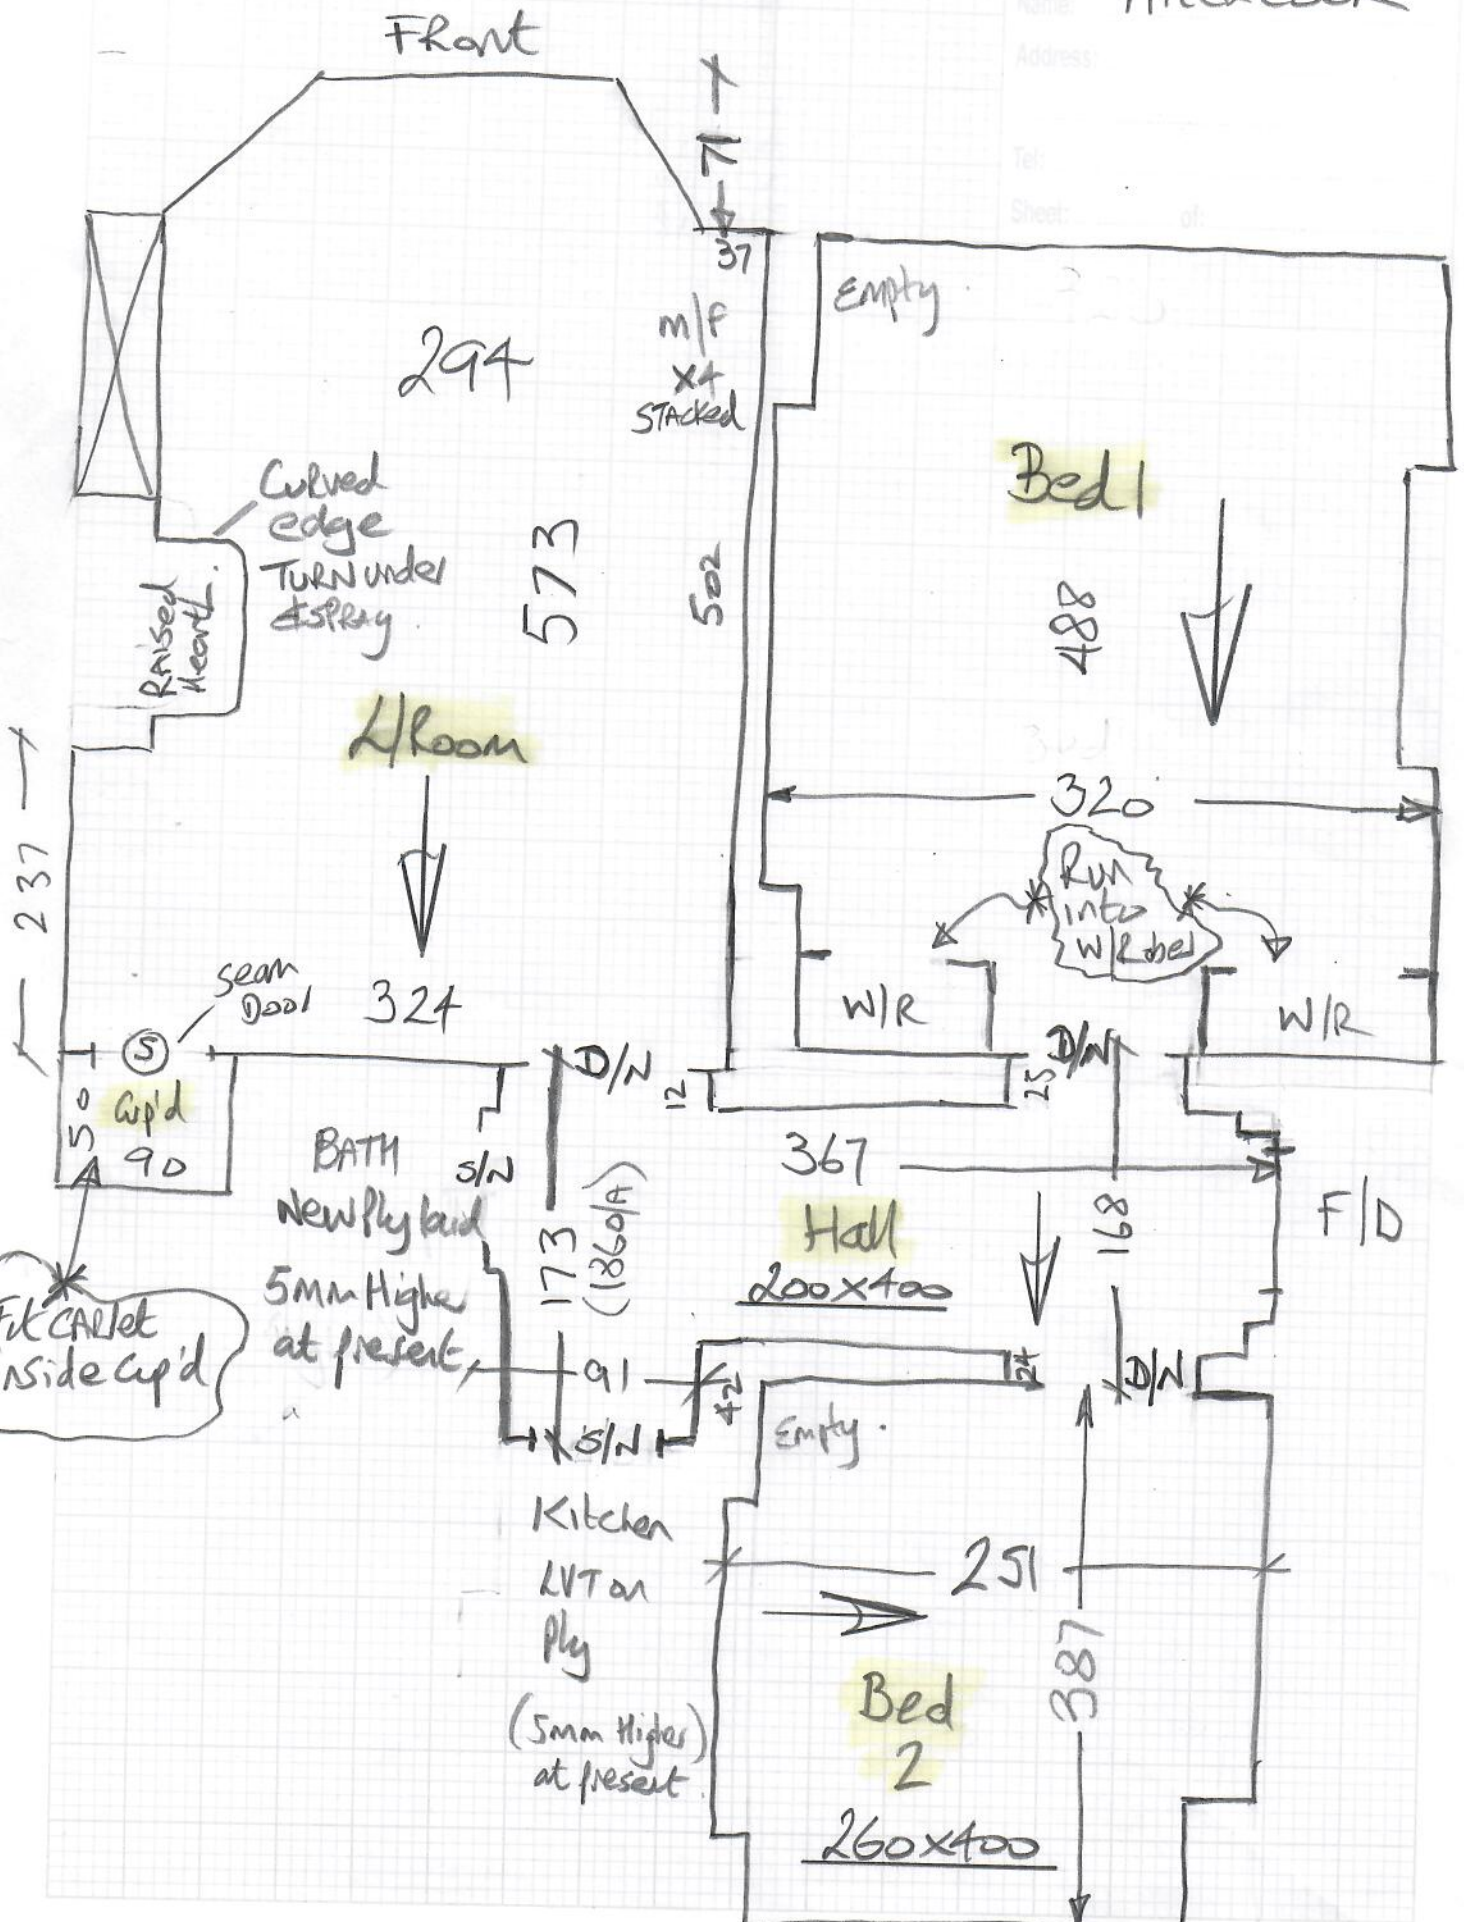 Front
Name:
Address:
Tel:
Sheet: of:
71
37
Empty
m/f
x4
STACKed
294
Curved
edge
TURN under
& SPRAY
573
502
Bed 1
488
RAISED
Hearth
L/Room
237
320
Run
into
W/Robes
seam
Door
324
W/R
W/R
S
D/N
D/N
12
25
50
Cup'd
90
BATH
New Ply laid
5mm Higher
at present
S/N
173
(186 O/A)
367
Hall
200x400
168
F/D
Fit CARPet
inside Cup'd
91
42
24
D/N
S/N
Empty
Kitchen
LVT on
Ply
(5mm Higher)
at present
251
387
Bed
2
260x400